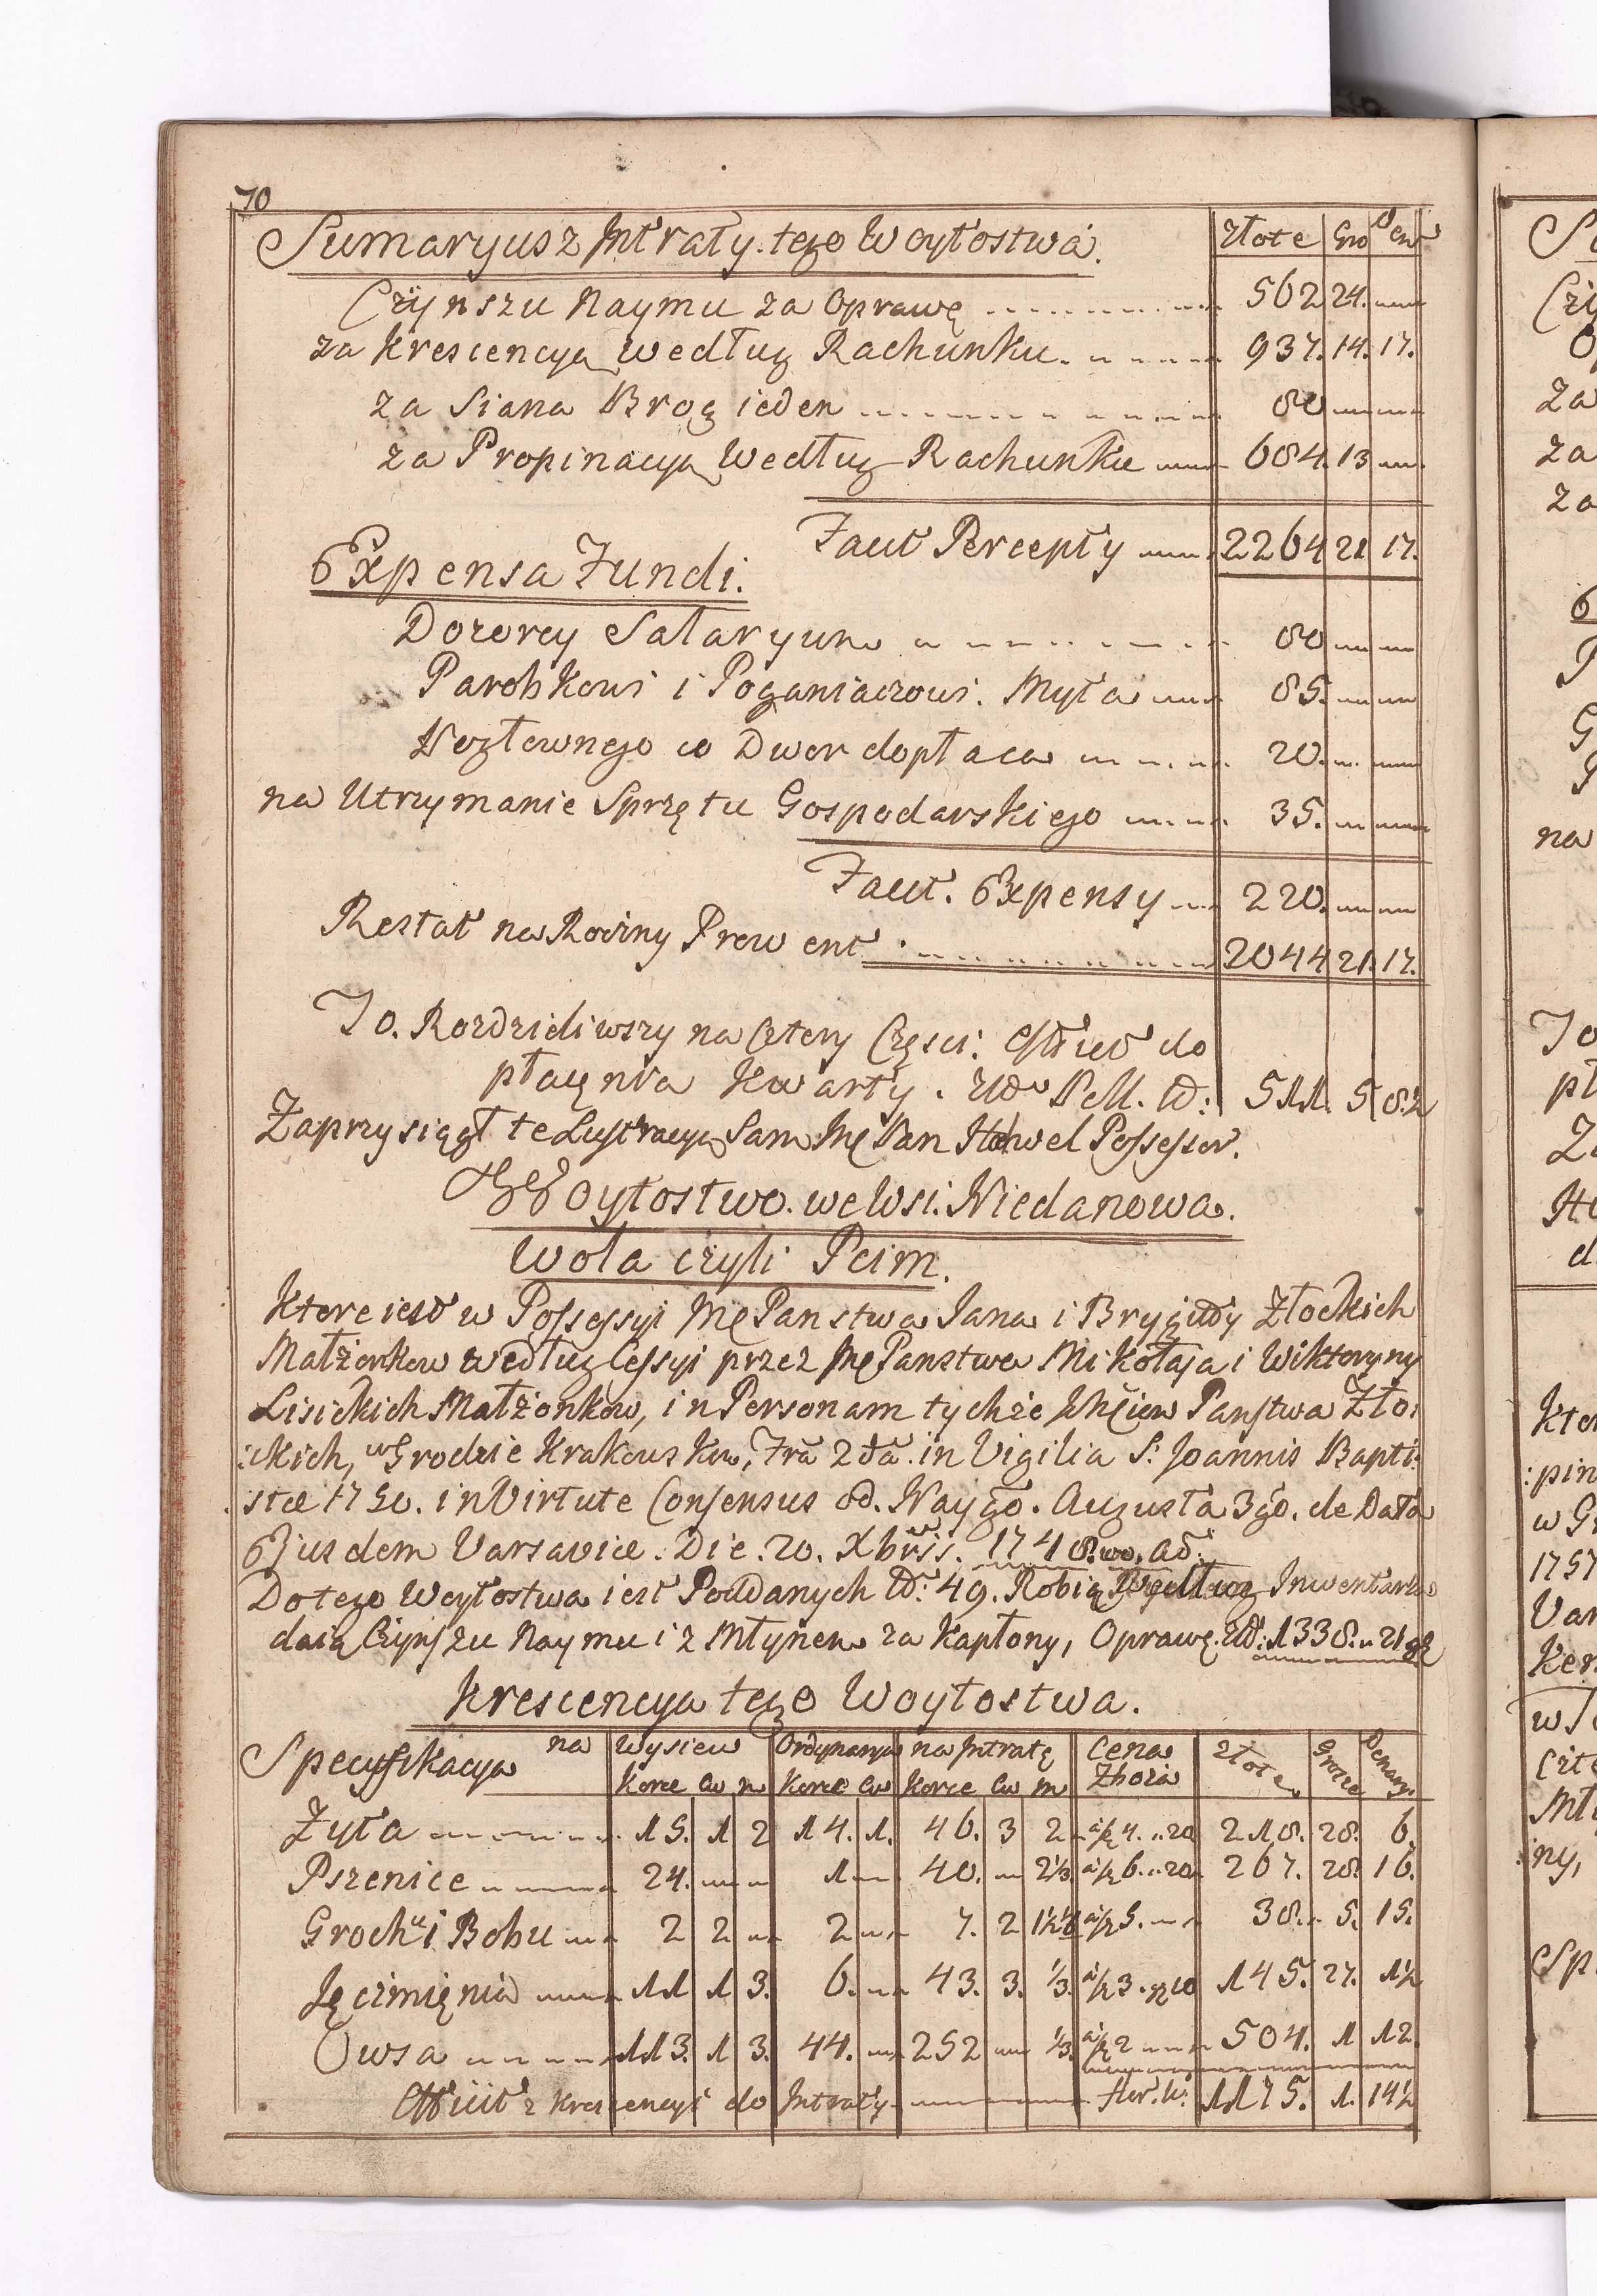 70
Sumaryusz Intraty tego Woytostwa. złote Gro Den
Czynszu Naymu za Oprawę 562 24.
za Krescencya według Rachunku. 937. 14. 17.
za Siana Brog ieden 80
za Propinacya Według Rachunku 684. 13
Facit Percepty 2264 21 17.
Expensa Fundi.
Dozorcy Salaryum 80
Parobkowi i Poganiaczowi. Myta 85.
Węgłownego co Dwor dopłaca 20.
na Utrzymanie Sprzętu Gospodarskiego 35.
Facit. Expensy 220.
Restat na Roczny Prowent 2044 21. 17.
To. Rozdzieliwszy na Cztery Częsci: do
płacenia Kwarty. 511. 5 8½
Zaprzysiągł te Lustracyą Sam Pan Possessor.
Woytostwo. we Wsi. Niedanowa.
Wola czyli Pcim.
Ktore iest w Possessyi Panstwa Jana i Brygidy Złockich
Małżonkow według Cessyi przez Panstwa Mikołaja i Wiktoryny
Lisickich Małżonkow, in Personam tychże Panstwa Zło:
:ckich, w Grodzie Krakowskim, Fra 2da in Vigilia S: Joannis Bapti:
:stæ 1750. in Virtute Consensus od. Naygo. Augusta 3go. de Data
Ejusdem Varsaviæ. Die. 20. Xbris. 1748.
Do tego Woytostwa iest Poddanych No: 49. Robią Według Inwentarza
daią Czynszu Naymu i z Młynem za Kapłony, Oprawę. 1338. 21
Krescencya tego Woytostwa.
Specyfikacya na Wysiew Ordynarya na Intratę Cena złote Grosze Denary
Korce Cw m Korce Cw Korce Cw m Zboża
Zyta 15. 1 2 14. 1. 46. 3 2 a/z 4. 20 218. 28. 6.
Pszenice 24. 1 40. 2⅓ a/z 6. 20 267. 28. 16.
Grochu i Bobu 2 2 2 7. 2 a/z 5. 38. 5. 15.
Jęczmięnia 11 1 3. 6. 43. 3. ⅓. a/z 3. 10 145. 27. 1½
Owsa 113. 1 3. 44. 252 ⅓. a/z 2 504. 1 12.
z Krescencyi do Intraty 1175. 1. 14½